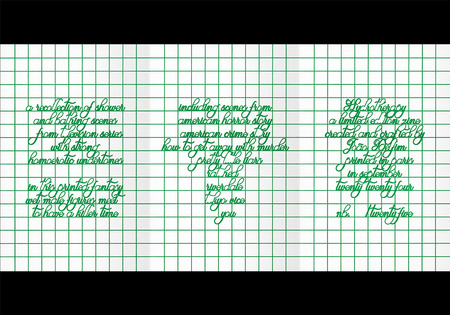 a recollection of shower
and bathing scenes
from television series
with strong
homoerotic undertones
in this printed fantasy
wet male figures meet
to have a killer time
including scenes from
american horror story
american crime story
how to get away with murder
pretty little liars
ratched
riverdale
tokyo vice
you
Hydrotherapy
a limited edition zine
created and crafted by
printed in paris
in september
twenty twenty four
nb. 1 twenty five